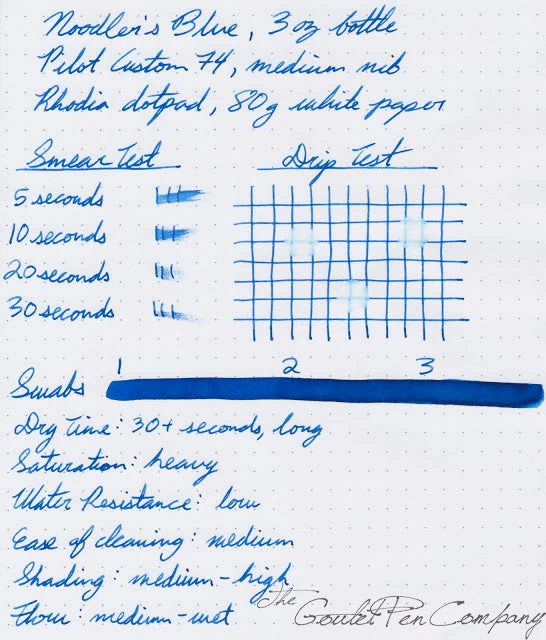 Noodler's Blue, 3 oz bottle
Pilot Custom 74, medium nib
Rhodia dotpad, 80g white paper
Smear Test
Drip Test
5 seconds
10 seconds
20 seconds
30 seconds
1 2 3
Swabs
Dry Time: 30+ seconds, long
Saturation: heavy
Water Resistance: low
Ease of cleaning: medium
Shading: medium-high
Flow: medium-wet
The Goulet Pen Company